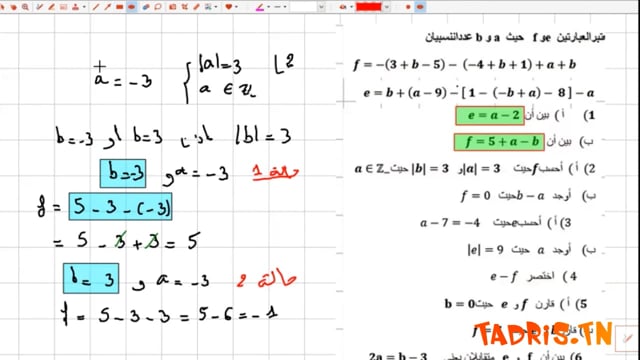 نعتبر العبارتين e و f حيث a و b عددان نسبيان
f = −(3 + b − 5) − (−4 + b + 1) + a + b
e = b + (a − 9) − [1 − (−b + a) − 8] − a
1) أ) بين أن e = a − 2
ب) بين أن f = 5 + a − b
2) أ) أحسب f حيث |a| = 3 و |b| = 3 حيث a ∈ ℤ₋
ب) أوجد b − a حيث f = 0
3) أ) أحسب e حيث a − 7 = −4
ب) أوجد a حيث |e| = 9
4) اختصر e − f
5) أ) قارن f و e حيث b = 0
a = −3 { |a| = 3 لـ 2
a ∈ ℤ₋
|b| = 3 إذن b = 3 أو b = −3
حالة 1 a = −3 و b = −3
f = 5 − 3 − (−3)
= 5 − 3 + 3 = 5
حالة 2 a = −3 و b = 3
f = 5 − 3 − 3 = 5 − 6 = −1
TADRIS.TN
2a = b − 3